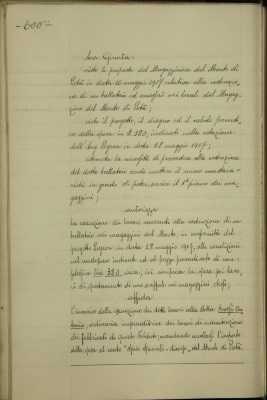 - 600 -
La Giunta:
vista la proposta del Magazziniere del Monte di
Pietà in data 20 maggio 1907 relativa alla costruzio-
ne di un ballatoio nei locali del Magaz-
zino del Monte di Pietà;
visto il progetto, il disegno ed il calcolo preventi-
vo della spesa in £ 380, indicati nella relazione
dell'Ing. Pegan in data 28 maggio 1907;
ritenuta la necessità di provvedere alla costruzione
del detto ballatoio onde mettere il nuovo
in grado di poter usare il 1° piano dei ma-
gazzini;
autorizza
la esecuzione dei lavori occorrenti alla costruzione di un
ballatoio nei magazzini del Monte, in conformità del
progetto Pegan in data 28 maggio 1907, alle condizioni
nel medesimo indicate ed al prezzo preventivato di com-
plessive lire 380. circa, ivi compresa la spesa pei lavo-
ri di spostamento di uno scaffale nei magazzini stessi;
affida
l'incarico della esecuzione dei detti lavori alla Ditta
ordinaria imprenditrice dei lavori di manutenzione
dei fabbricati di questo Istituto; mandando l'importo
della spesa al conto "Spese diverse" del Monte di Pietà.